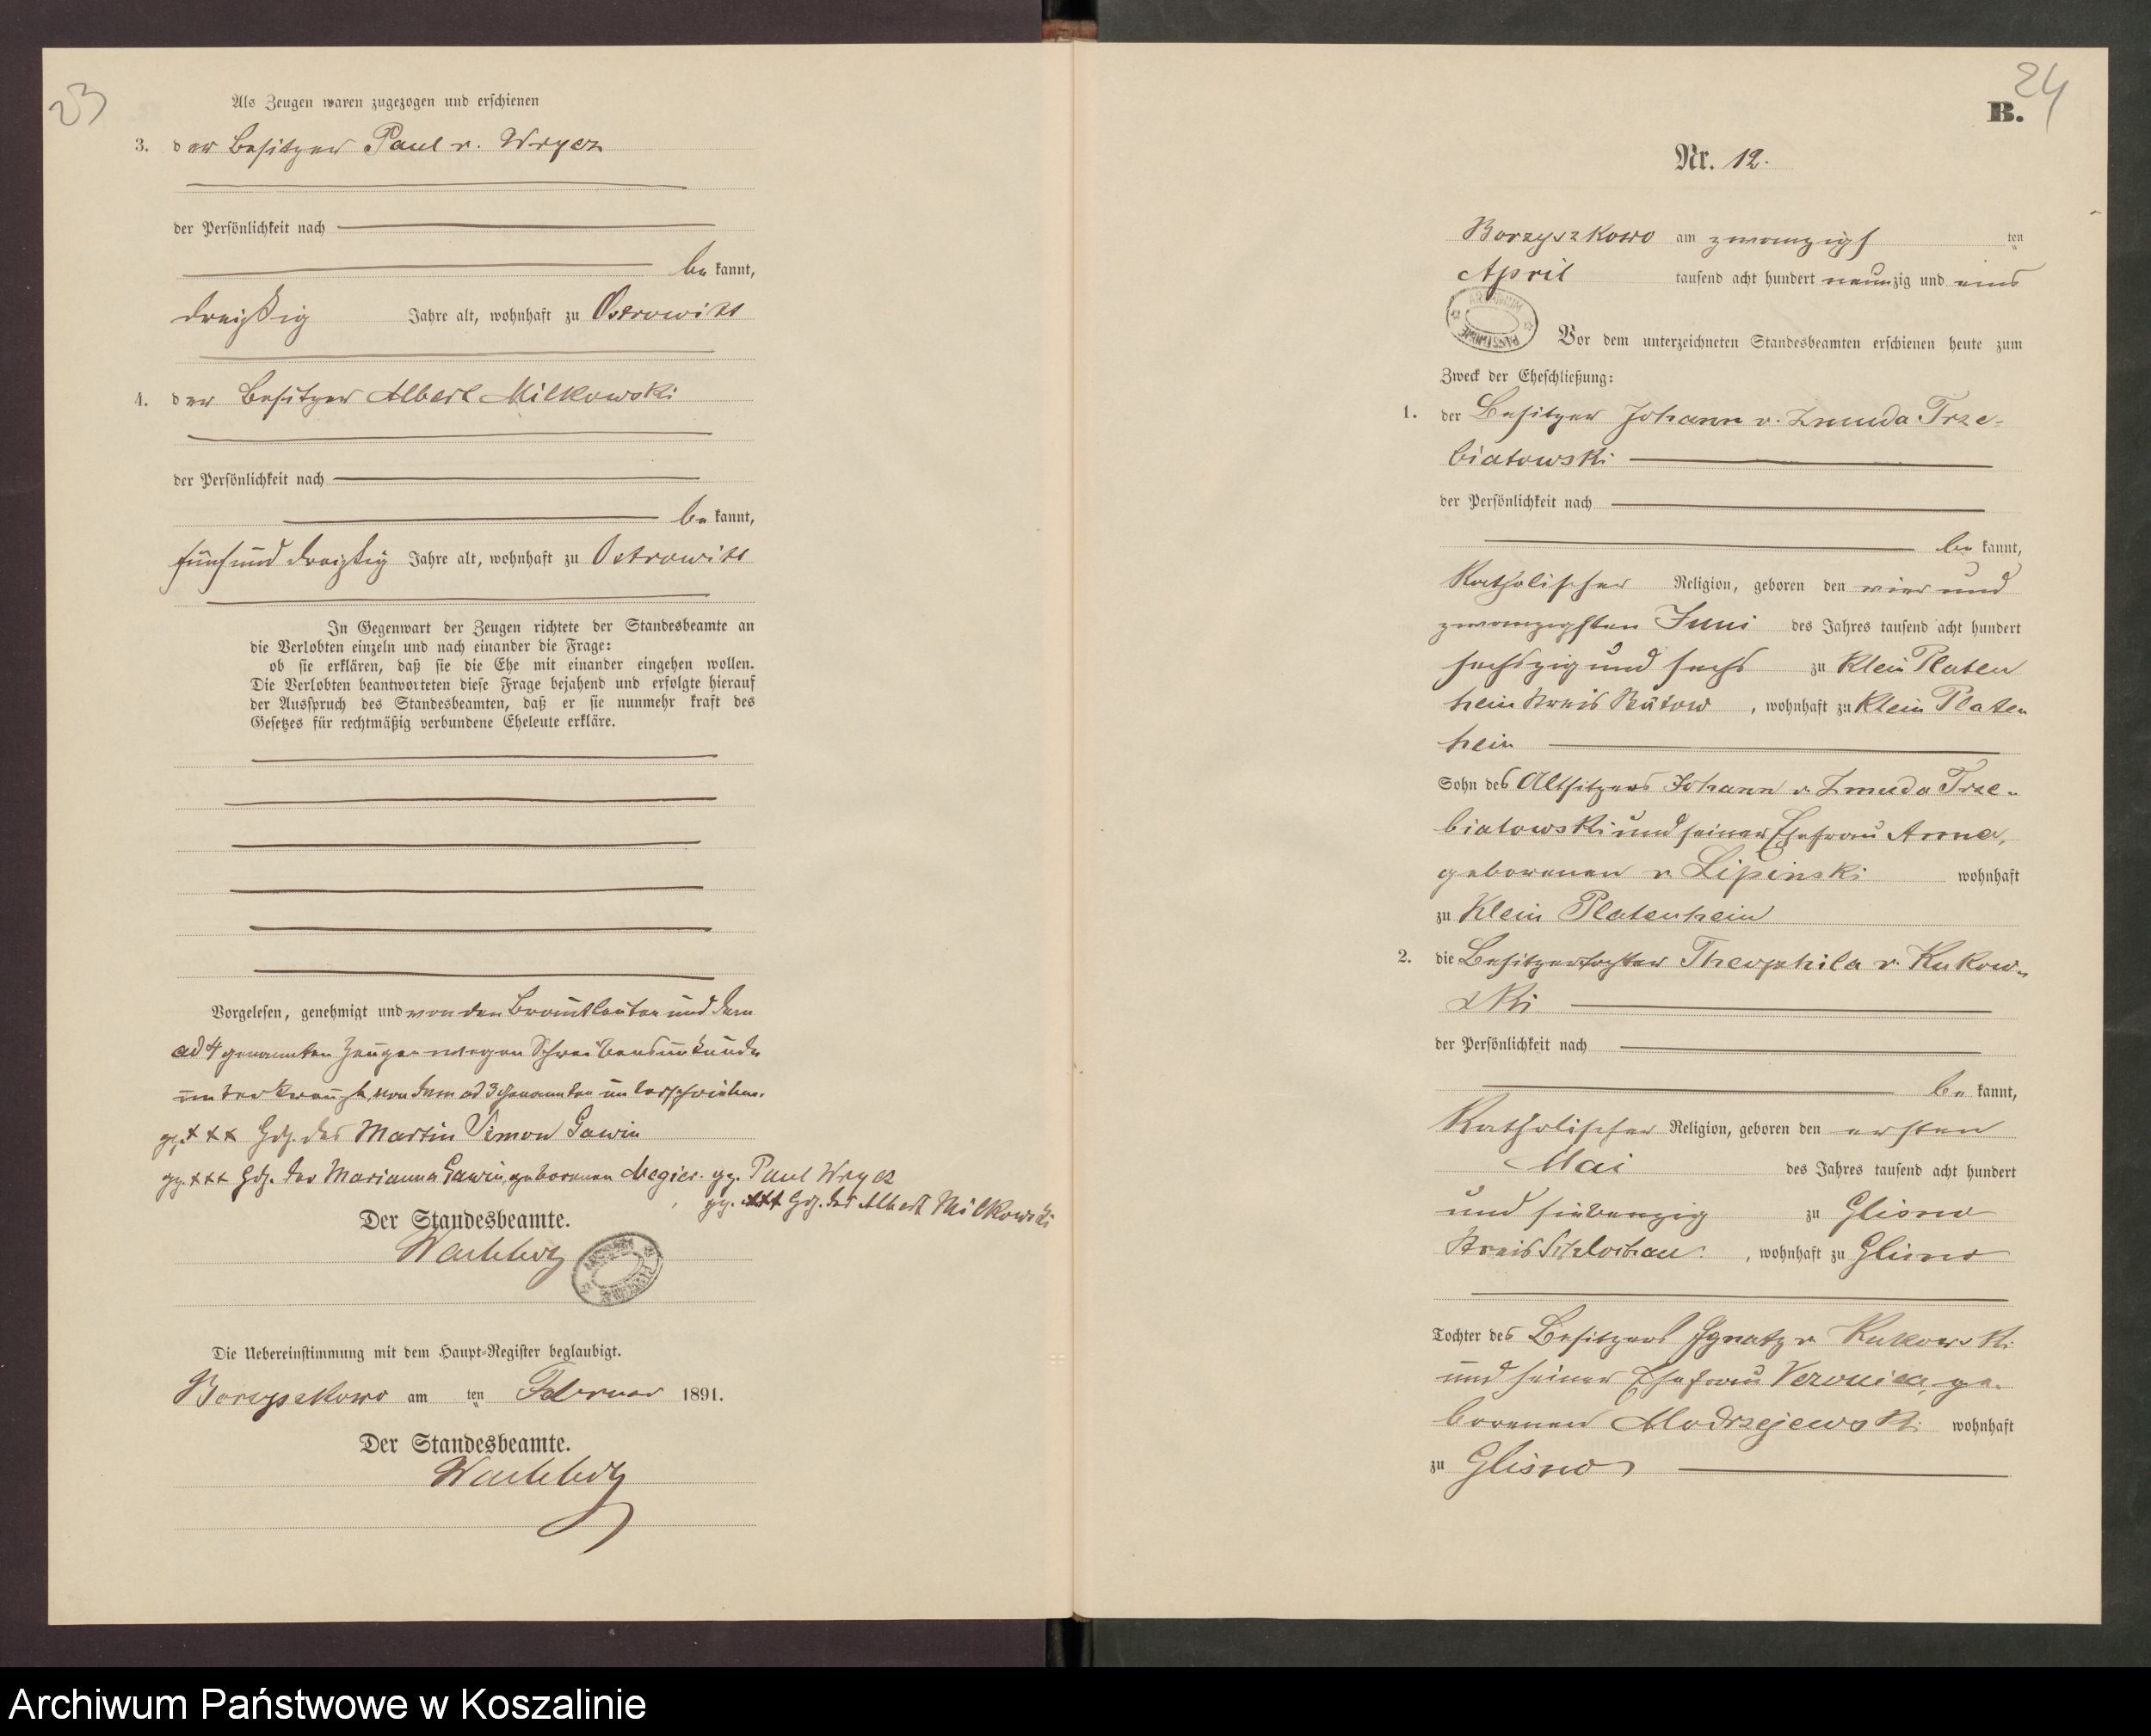 23
Als Zeugen waren zugezogen und erschienen
3. der Besitzer Paul v. Wrycz
der Persönlichkeit nach
be kannt,
dreißig Jahre alt, wohnhaft zu Ostrowitt
4. der Besitzer Albert Milkowski
der Persönlichkeit nach
be kannt,
fünfunddreizig Jahre alt, wohnhaft zu Ostrowitt
In Gegenwart der Zeugen richtete der Standesbeamte an
die Verlobten einzeln und nach einander die Frage:
ob sie erklären, daß sie die Ehe mit einander eingehen wollen.
Die Verlobten beantworteten diese Frage bejahend und erfolgte hierauf
der Ausspruch des Standesbeamten, daß er sie nunmehr kraft des
Gesetzes für rechtmäßig verbundene Eheleute erkläre.
Vorgelesen, genehmigt und von den Brautleuten und dem
ad 4 genannten Zeugen wegen Schreibensunkunde
unterkreuzt, von dem ad 3 Genannten unterschrieben.
gz. +++ Hdz. des Martin Simon Gawin
gz. +++ Hdz. der Marianna Gawin, geborenen Megier. gz. Paul Wrycz
gz. +++ Hdz. des Albert Milkowski
Der Standesbeamte.
Die Uebereinstimmung mit dem Haupt-Register beglaubigt.
Borzyszkowo am ten Februar 1891.
Der Standesbeamte.
24
B.
Nr. 12.
Borzyszkowo am zwanzigs ten
April tausend acht hundert neunzig und eins
ARCHIWUM PAŃSTWOWE
Vor dem unterzeichneten Standesbeamten erschienen heute zum
Zweck der Eheschließung:
1. der Besitzer Johann v. Zmuda Trze-
biatowski
der Persönlichkeit nach
be kannt,
Katholischer Religion, geboren den vier und
zwanzigsten Juni des Jahres tausend acht hundert
sechszig und sechs zu Klein Platen
hein Kreis Bütow, wohnhaft zu Klein Platen
hein
Sohn des Altsitzers Johann v. Zmuda Trze-
biatowski und seiner Ehefrau Anna,
geborenen v. Lipinski wohnhaft
zu Klein Platenhein
2. die Besitzertochter Theophila v. Kukow-
ski
der Persönlichkeit nach
be kannt,
Katholischer Religion, geboren den ersten
Mai des Jahres tausend acht hundert
und siebenzig zu Glisno
Kreis Schlochau, wohnhaft zu Glisno
Tochter des Besitzers Ignatz v. Kukowski
und seiner Ehefrau Veronica, ge-
borenen Modrzejewski wohnhaft
zu Glisno
Archiwum Państwowe w Koszalinie